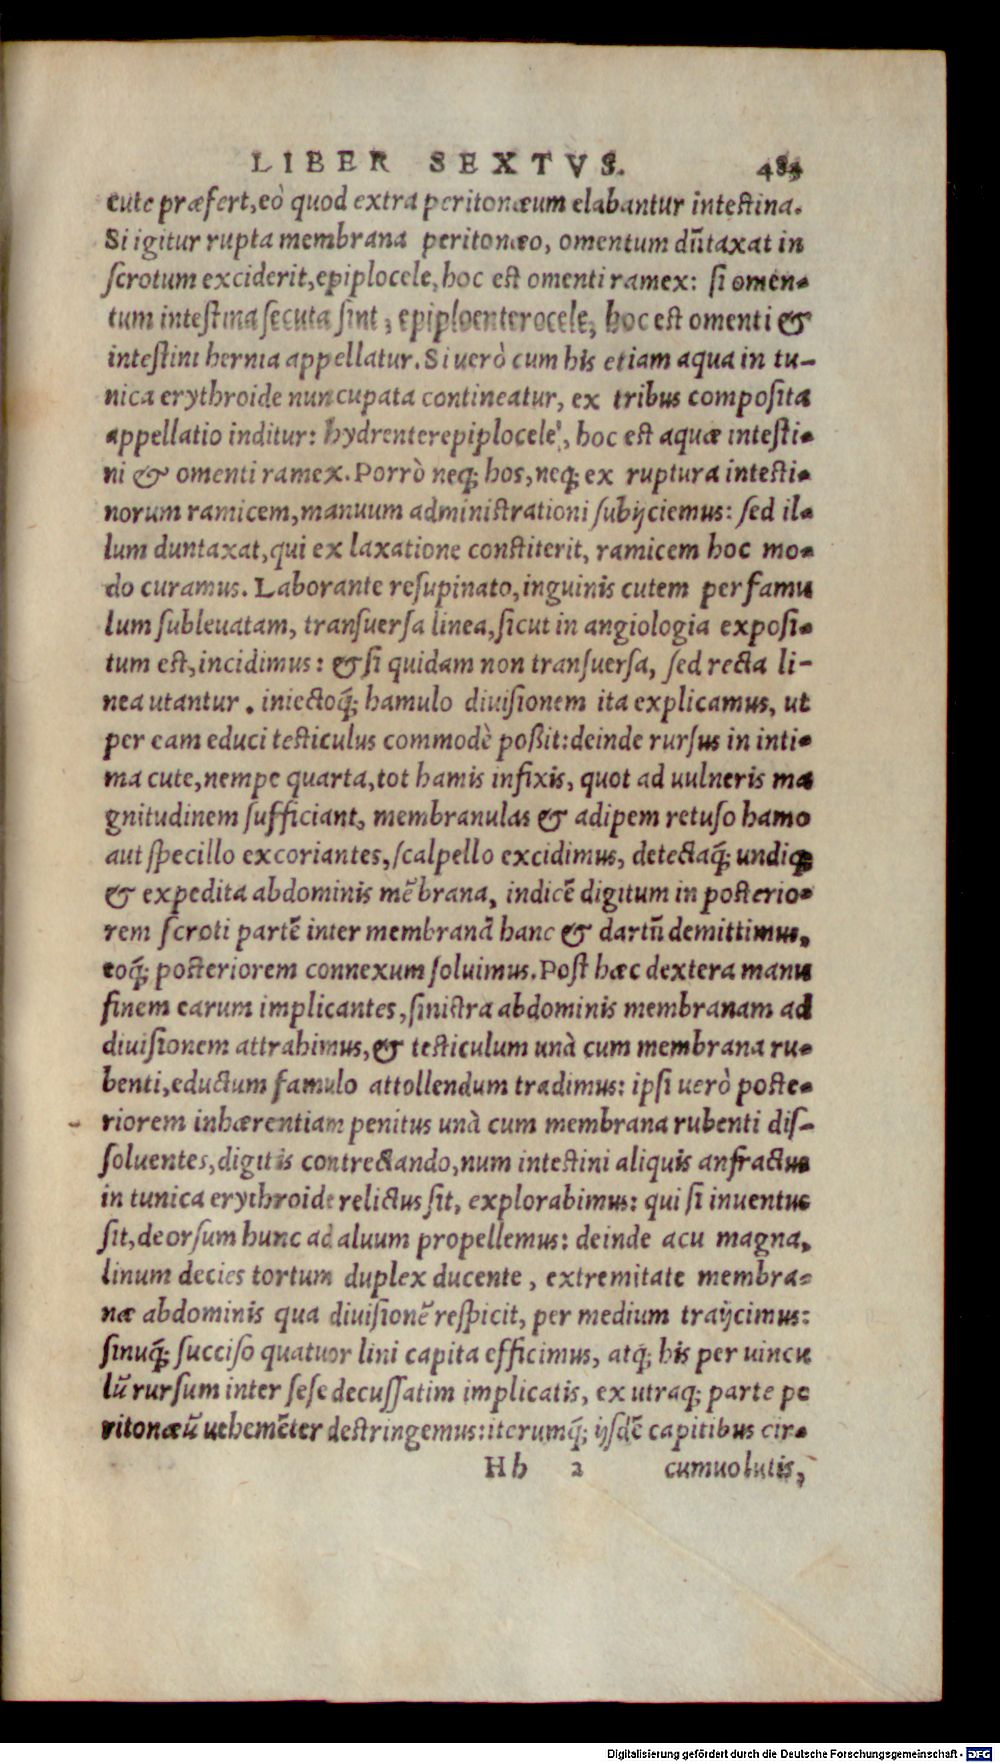 LIBER SEXTVS. 483
cute præfert, eò quod extra peritonæum elabantur intestina.
Si igitur rupta membrana peritonæo, omentum dũtaxat in
scrotum exciderit, epiplocele, hoc est omenti ramex: si omen-
tum intestina secuta sint, epiploenterocele, hoc est omenti &
intestini hernia appellatur. Si uerò cum his etiam aqua in tu-
nica erythroide nuncupata contineatur, ex tribus composita
appellatio inditur: hydrenterepiplocele, hoc est aquæ intesti-
ni & omenti ramex. Porrò neq; hos, neq; ex ruptura intesti-
norum ramicem, manuum administrationi subijciemus: sed il-
lum duntaxat, qui ex laxatione constiterit, ramicem hoc mo-
do curamus. Laborante resupinato, inguinis cutem per famu
lum subleuatam, transuersa linea, sicut in angiologia exposi-
tum est, incidimus: & si quidam non transuersa, sed recta li-
nea utantur. iniectoq́; hamulo diuisionem ita explicamus, ut
per eam educi testiculus commodè poßit: deinde rursus in inti-
ma cute, nempe quarta, tot hamis infixis, quot ad uulneris ma
gnitudinem sufficiant, membranulas & adipem retuso hamo
aut specillo excoriantes, scalpello excidimus, detectaq́; undiq;
& expedita abdominis mẽbrana, indicẽ digitum in posterio-
rem scroti partẽ inter membranã hanc & dartũ demittimus,
eoq́; posteriorem connexum soluimus. Post hæc dextera manu
finem earum implicantes, sinistra abdominis membranam ad
diuisionem attrahimus, & testiculum unà cum membrana ru-
benti, eductum famulo attollendum tradimus: ipsi uerò poste-
riorem inhærentiam penitus unà cum membrana rubenti dis-
soluentes, digitis contrectando, num intestini aliquis anfractus
in tunica erythroide relictus sit, explorabimus: qui si inuentus
sit, deorsum hunc ad aluum propellemus: deinde acu magna,
linum decies tortum duplex ducente, extremitate membra-
næ abdominis qua diuisionẽ respicit, per medium traijcimus:
sinuq́; succiso quatuor lini capita efficimus, atq́; his per uincu
lũ rursum inter sese decussatim implicatis, ex utraq; parte pe
ritonæũ uehemẽter destringemus: iterumq́; ijsdẽ capitibus cir-
Hh 2 cumuolutis,
Digitalisierung gefördert durch die Deutsche Forschungsgemeinschaft - DFG